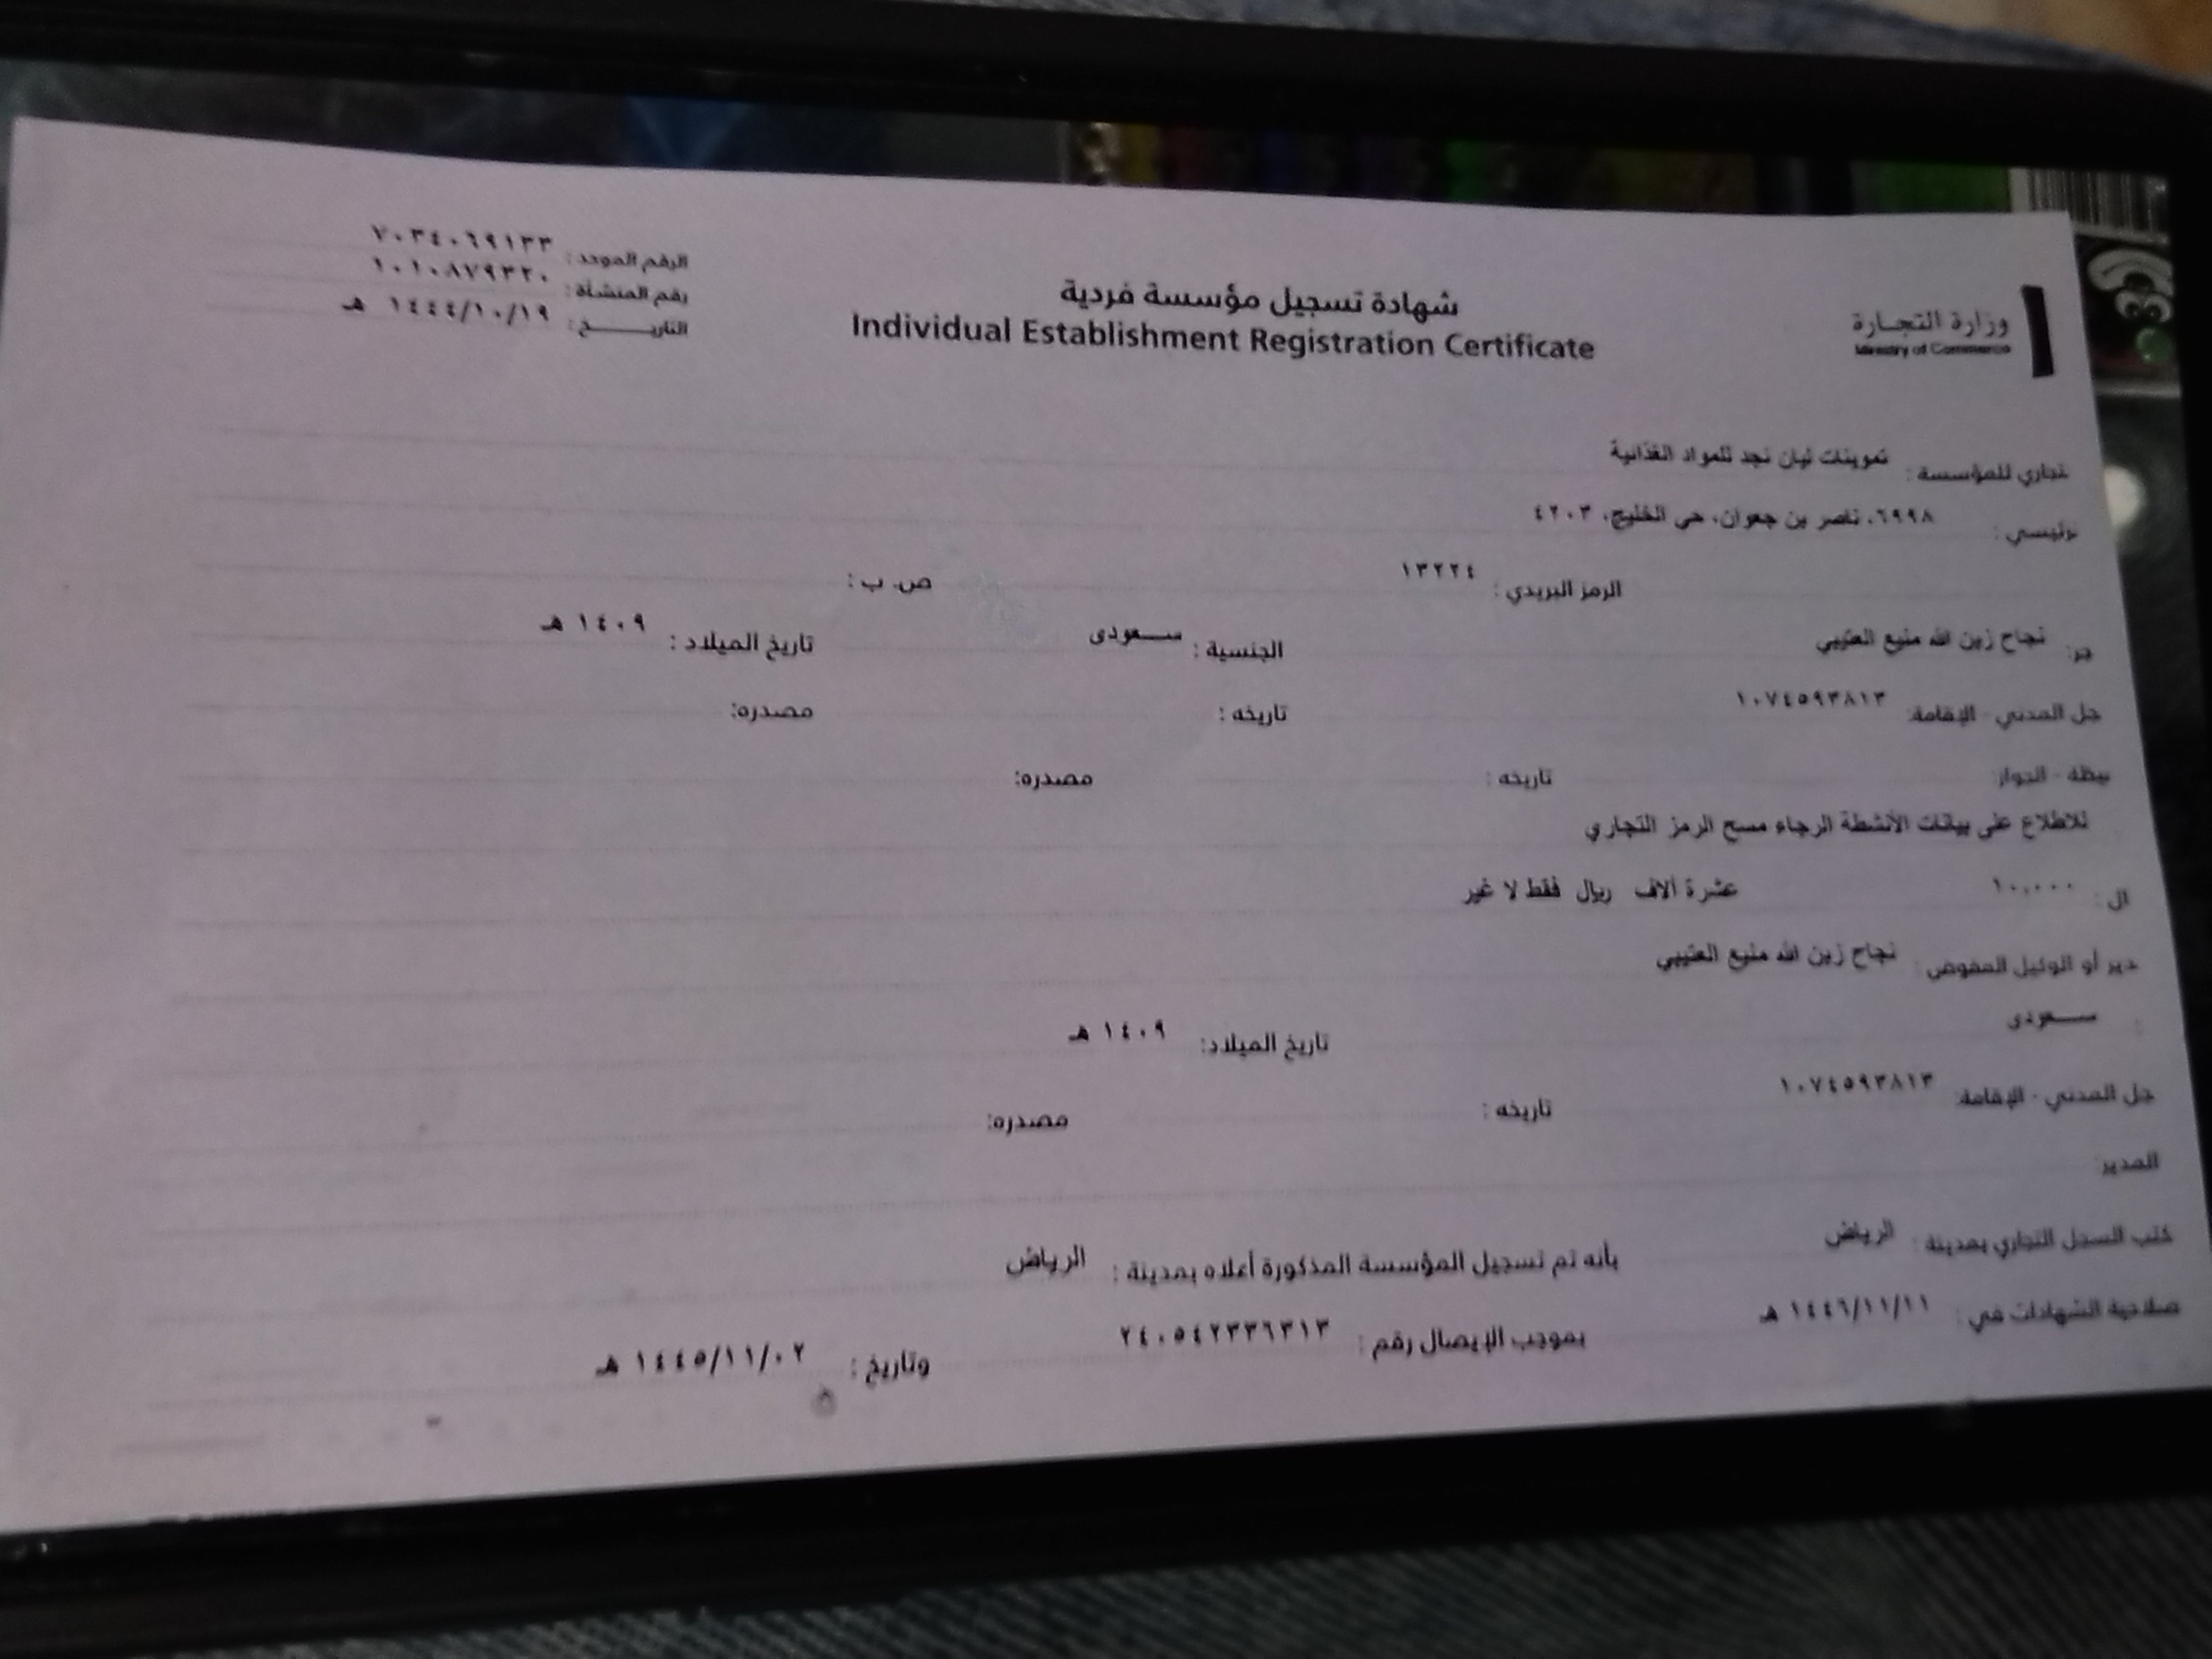 وزارة التجارة
Ministry of Commerce
شهادة تسجيل مؤسسة فردية
Individual Establishment Registration Certificate
الرقم الموحد : ٧٠٣٤٠٦٩١٣٣
رقم المنشأة : ١٠١٠٨٧٩٣٢٠
التاريخ : ١٤٤٤/١٠/١٩ هـ
تجاري للمؤسسة : تموينات نيان نجد للمواد الغذائية
رئيسي : ٦٩٩٨، ناصر بن جعوان، حي الخليج، ٤٢٠٣
الرمز البريدي : ١٣٢٢٤ ص. ب :
جر: نجاح زين الله منيع العتيبي الجنسية : سعودى تاريخ الميلاد : ١٤٠٩ هـ
جل المدني - الإقامة: ١٠٧٤٥٩٣٨١٣ تاريخه : مصدره:
تاريخه : مصدره:
للاطلاع على بيانات الأنشطة الرجاء مسح الرمز التجاري
ال : ١٠,٠٠٠ عشرة آلاف ريال فقط لا غير
دير أو الوكيل المفوض : نجاح زين الله منيع العتيبي
: سعودى تاريخ الميلاد: ١٤٠٩ هـ
جل المدني - الإقامة: ١٠٧٤٥٩٣٨١٣ تاريخه : مصدره:
المدير:
كتب السجل التجاري بمدينة : الرياض بأنه تم تسجيل المؤسسة المذكورة أعلاه بمدينة : الرياض
صلاحية الشهادات في : ١٤٤٦/١١/١١ هـ بموجب الإيصال رقم : ٢٤٠٥٤٢٣٣٦٣١٣ وتاريخ : ١٤٤٥/١١/٠٢ هـ